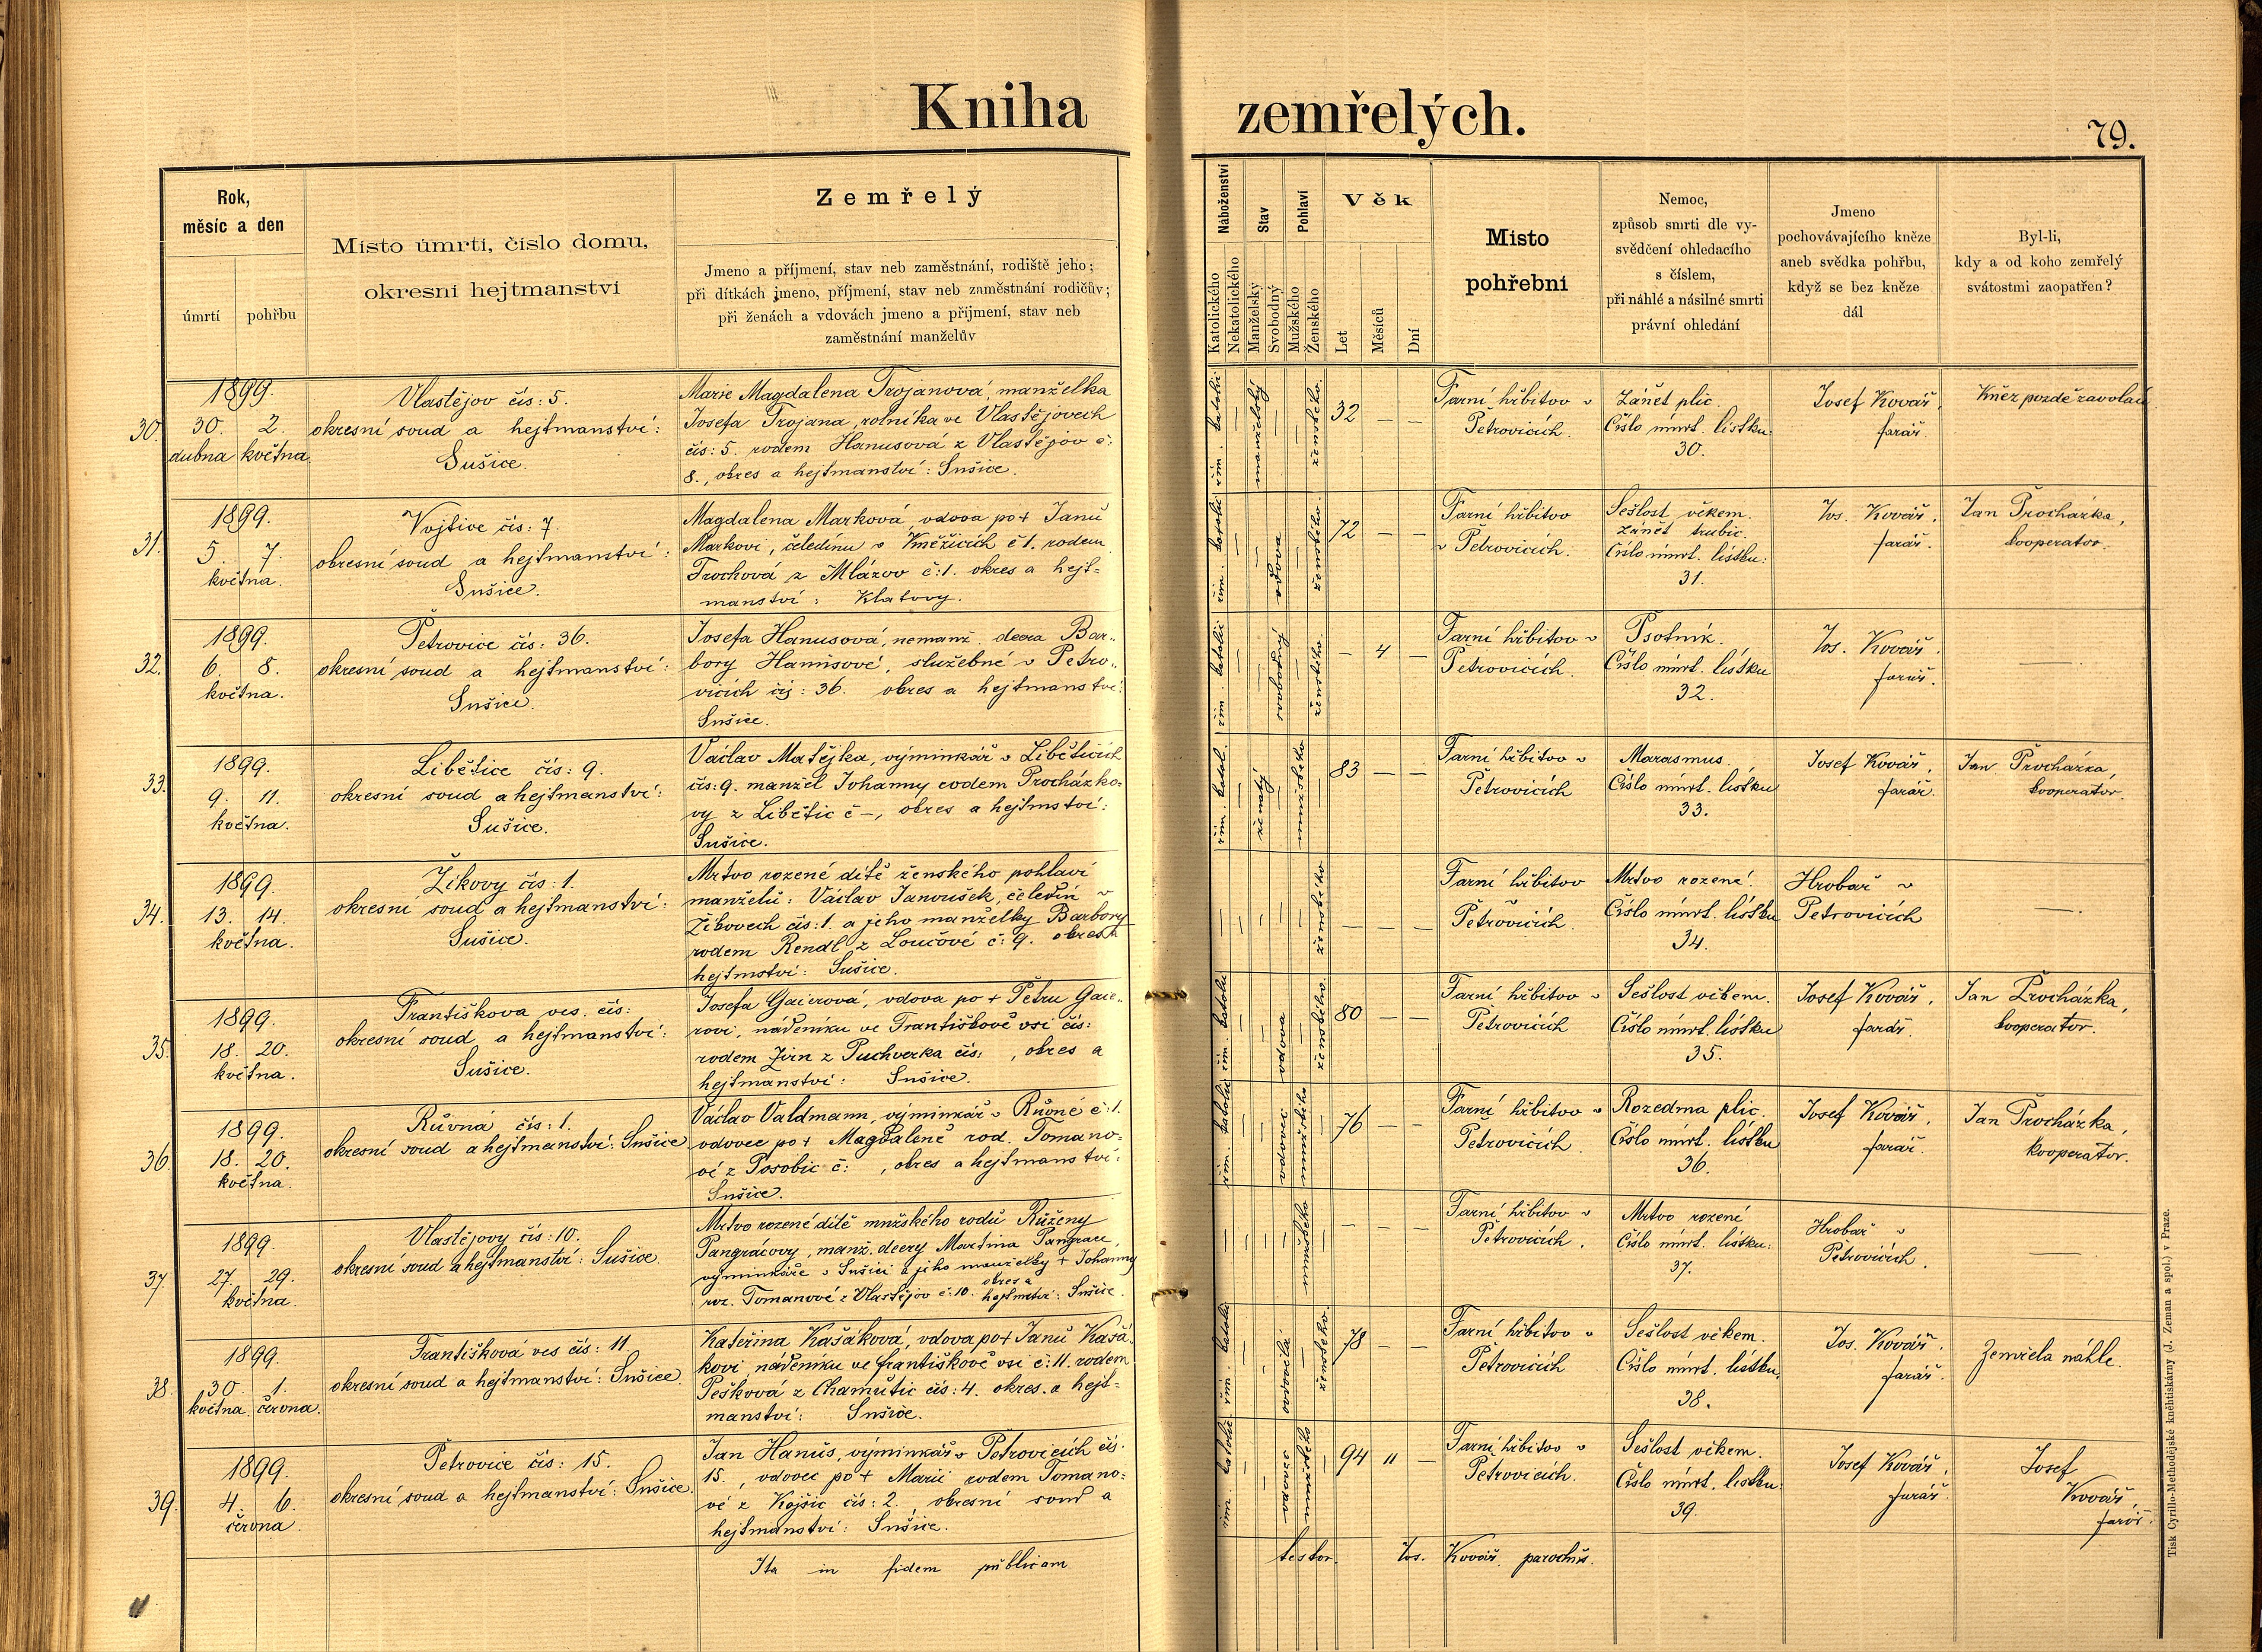 Kniha zemřelých.
79.
Rok,
měsíc a den
úmrtí
pohřbu
Místo úmrtí, číslo domu,
okresní hejtmanství
Zemřelý
Jmeno a příjmení, stav neb zaměstnání, rodiště jeho;
při dítkách jmeno, příjmení, stav neb zaměstnání rodičův;
při ženách a vdovách jmeno a příjmení, stav neb
zaměstnání manželův
Náboženství
Katolického
Nekatolického
Stav
Manželský
Svobodný
Pohlaví
Mužského
Ženského
Věk
Let
Měsíců
Dní
Místo
pohřební
Nemoc,
způsob smrti dle vy-
svědčení ohledacího
s číslem,
při náhlé a násilné smrti
právní ohledání
Jmeno
pochovávajícího kněze
aneb svědka pohřbu,
když se bez kněze
dál
Byl-li,
kdy a od koho zemřelý
svátostmi zaopatřen?
30.
1899.
30. 2.
dubna května.
Vlastějov čís: 5.
okresní soud a hejtmanství:
Sušice.
Marie Magdalena Trojanová, manželka
Josefa Trojana, rolníka ve Vlastějovech
čís: 5. rodem Hanusová z Vlastějov č:
8., okres a hejtmanství: Sušice.
řím. katolic
manželský
ženského.
32 — —
Farní hřbitov v
Petrovicích.
Zánět plic.
Číslo úmrt. lístku:
30.
Josef Kovář,
farář.
Kněz pozdě zavolán
31.
1899.
5. 7.
května.
Vojtice čís: 7.
okresní soud a hejtmanství:
Sušice.
Magdalena Marková, vdova po + Janu
Markovi, čeledínu v Kněžicích č 1. rodem
z Mlázov č: 1. okres a hejt=
manství: Klatovy.
řím. katolic
vdova
ženského.
72 — —
Farní hřbitov
v Petrovicích.
Sešlost věkem.
Zánět trubic.
Číslo úmrt. lístku:
31.
Jos. Kovář,
farář.
Jan Procházka,
kooperator.
32.
1899.
6. 8.
května.
Petrovice čís: 36.
okresní soud a hejtmanství:
Sušice.
Josefa Hanusová, nemanž. dcera Bar-
bory Hanusové, služebné v Petro-
vicích čís: 36. okres a hejtmanství:
Sušice.
řím. katolic
svobodný
ženského.
— 4 —
Farní hřbitov v
Petrovicích.
Psotník.
Číslo úmrt. lístku
32.
Jos. Kovář.
farář.
—
33.
1899.
9. 11.
května.
Libětice čís: 9.
okresní soud a hejtmanství:
Sušice.
Václav Matějka, výminkář v Libětících
čís: 9. manžel Johanny rodem Procházko-
vy z Libětic č —, okres a hejtmství:
Sušice.
řím. katol.
ženatý
mužského
83 — —
Farní hřbitov v
Petrovicích
Marasmus.
Číslo úmrt. lístku
33.
Josef Kovář,
farář.
Jan Procházka,
kooperator.
34.
1899.
13. 14.
května.
Žíkovy čís: 1.
okresní soud a hejtmanství:
Sušice.
Mrtvo rozené dítě ženského pohlaví
manželů: Václav Janoušek, čeledín v
Žíkovech čís: 1. a jeho manželky Barbory
rodem Rendl z Loučové č: 9. okres a
hejtmství: Sušice.
ženského
— — —
Farní hřbitov v
Petrovicích.
Mrtvo rozené.
Číslo úmrt. lístku
34.
Hrobař v
Petrovicích
—
35.
1899.
18. 20.
května.
Františkova ves. čís:
okresní soud a hejtmanství:
Sušice.
Josefa Gaierová, vdova po + Petru Gaie-
rovi, nádeníku ve Františkově vsi čís:
rodem Jirn z Puchverka čís: , okres a
hejtmanství: Sušice.
řím. katolic
vdova
ženského.
80 — —
Farní hřbitov v
Petrovicích
Sešlost věkem.
Číslo úmrt. lístku
35.
Josef Kovář,
farář.
Jan Procházka,
kooperator.
36.
1899.
18. 20.
května.
Růvná čís: 1.
okresní soud a hejtmanství: Sušice
Václav Valdmann, výminkář v Růvné č: 1.
vdovec po + Magdaleně rod. Tomano=
vé z Posobic č: , okres a hejtmanství:
Sušice.
řím. katolic
vdovec
mužského
76 — —
Farní hřbitov v
Petrovicích.
Rozedma plic.
Číslo úmrt. lístku
36.
Josef Kovář,
farář.
Jan Procházka,
kooperator.
37.
1899.
27. 29.
května.
Vlastějovy čís: 10.
okresní soud a hejtmanství: Sušice.
Mrtvo rozené dítě mužského rodu Růženy
Pangrácovy, manž. dcery Martina Pangrace,
výminkáře v Sušici a jeho manželky + Johanny
roz. Tomanové z Vlastějov č: 10. okres a hejtmství: Sušice.
mužského
— — —
Farní hřbitov v
Petrovicích.
Mrtvo rozené
Číslo úmrt. lístku:
37.
Hrobař v
Petrovicích.
—
38.
1899.
30. 1.
května. června.
Františková ves čís: 11.
okresní soud a hejtmanství: Sušice.
Kateřina Kašáková, vdova po + Janu Kašá-
kovi nádeníku ve Františkově vsi č: 11. rodem
Pešková z Chamutic čís: 4. okres. a hejt=
manství: Sušice.
řím. katolic
ovdovělá
ženského.
78 — —
Farní hřbitov v
Petrovicích
Sešlost věkem.
Číslo úmrt. lístku.
38.
Jos. Kovář.
farář.
Zemřela náhle.
39.
1899.
4. 6.
června.
Petrovice čís: 15.
okresní soud a hejtmanství: Sušice.
Jan Hanuš, výminkář v Petrovicích čís.
15., vdovec po + Marii rodem Tomano=
vé z Kojšic čís: 2., okresní soud a
hejtmanství: Sušice.
řím. katolic.
vdovec
mužského
94 11 —
Farní hřbitov v
Petrovicích.
Sešlost věkem.
Číslo úmrt. lístku:
39.
Josef Kovář,
farář.
Josef
Kovář,
farář.
Ita in fidem publicam testor. Jos. Kovář. parochus.
Tisk Cyrillo-Methodějské kněhtiskárny (J. Zeman a spol.) v Praze.